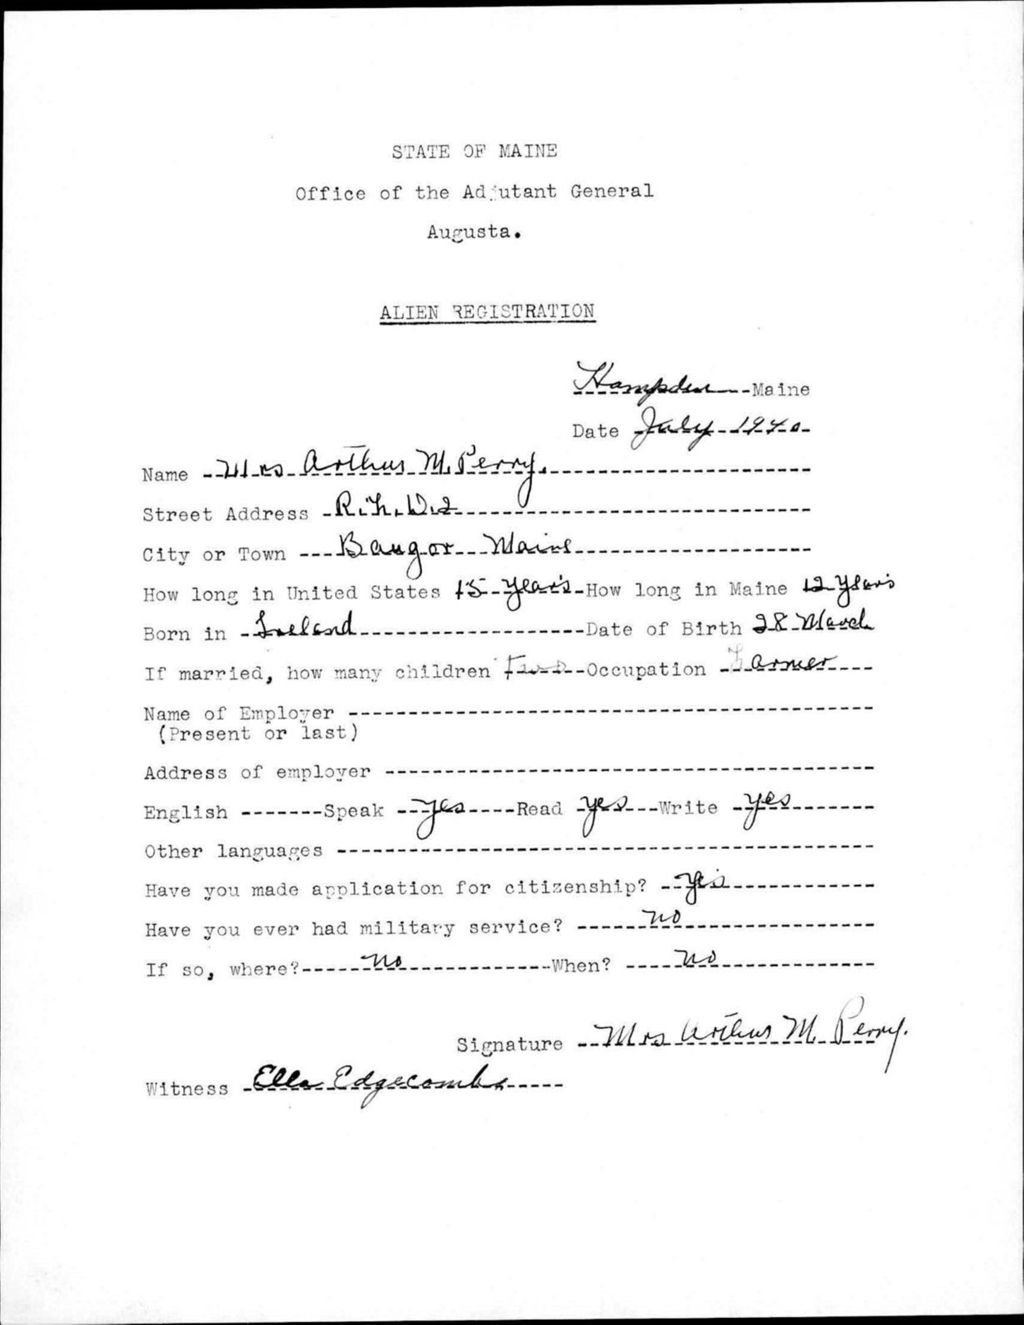 STATE OF MAINE
Office of the Adjutant General
Augusta.
ALIEN REGISTRATION
Hampden Maine
Date July 1940
Name Mrs Arthur M. Perry.
Street Address R.F.D.2
City or Town Bangor Maine
How long in United States 15 years How long in Maine 12 years
Born in Ireland Date of Birth 28 March
If married, how many children Two Occupation Farmer
Name of Employer
(Present or last)
Address of employer
English Speak yes Read yes Write yes
Other languages
Have you made application for citizenship? yes
Have you ever had military service? no
If so, where? no When? no
Signature Mrs Arthur M Perry.
Witness Ella Edgecomb